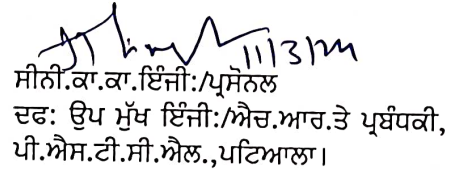 11/3/24
ਸੀਨੀ.ਕਾ.ਕਾ.ਇੰਜੀ:/ਪ੍ਰਸੋਨਲ
ਦਫ: ਉਪ ਮੁੱਖ ਇੰਜੀ:/ਐਚ.ਆਰ.ਤੇ ਪ੍ਰਬੰਧਕੀ,
ਪੀ.ਐਸ.ਟੀ.ਸੀ.ਐਲ.,ਪਟਿਆਲਾ।